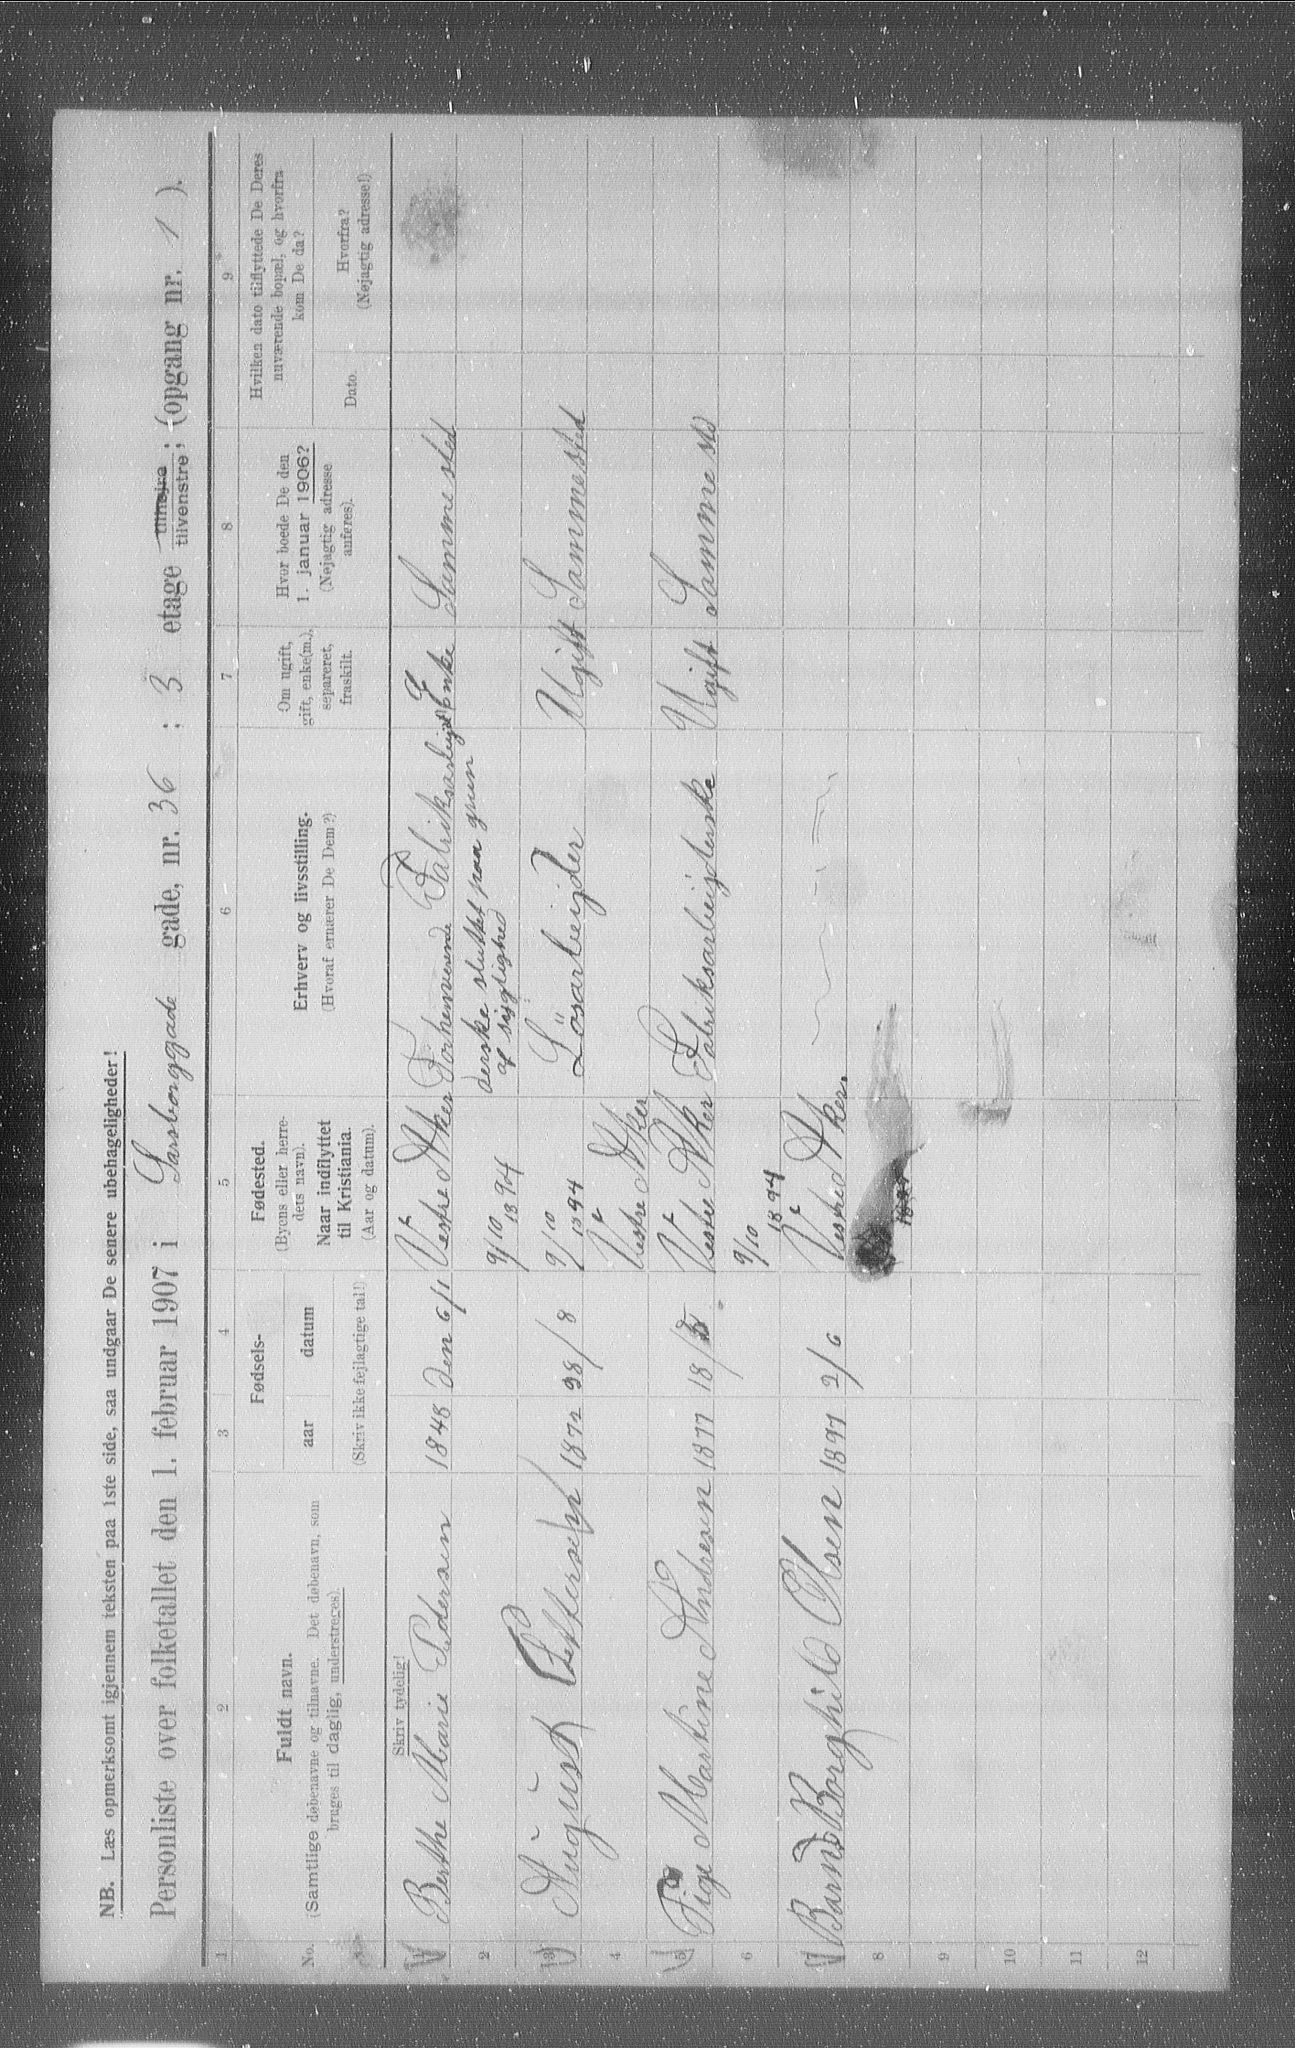 NB. Læs opmerksomt igjennem teksten paa 1ste side, saa undgaar De senere ubehageligheder!
Personliste over folketallet den 1. februar 1907 i Sarsborggade gade, nr. 36 : 3 etage tilhøjre tilvenstre; (opgang nr. 1 ).
1 2 3 4 5 6 7 8 9
No.
Fuldt navn.
(Samtlige døbenavne og tilnavne. Det døbenavn, som
bruges til daglig, understreges).
Fødsels-
aar datum
(Skriv ikke fejlagtige tal!)
Fødested.
(Byens eller herre-
dets navn).
Naar indflyttet
til Kristiania.
(Aar og datum).
Erhverv og livsstilling.
(Hvoraf ernærer De Dem?)
Om ugift,
gift, enke(m.),
separeret,
fraskilt.
Hvor boede De den
1. januar 1906?
(Nøjagtig adresse
anføres).
Hvilken dato tilflyttede De Deres
nuværende bopæl, og hvorfra
kom De da?
Dato.
Hvorfra?
(Nøjagtig adresse!)
Skriv tydelig!
1 Berthe Marie Pedersen 1848 den 6/1 Vestre Aker Forhenverende Fabriksarbeij Enke Samme sted
2 9/10 1894 derske sluttet paa grun
af sijglighed
3 August Pettersen 1872 28/8 9/10 1894 Lösarbeijder Ugift Samme sted
4 Vestre Aker
5 Pige Martine Andresen 1877 18/5 Vestre Aker Fabriksarbeijderske Ugift Samme sted
6 9/10 1894
7 Barnd Borghild Olsen 1897 2/6 Vestre Aker.
8 1897
9
10
11
12